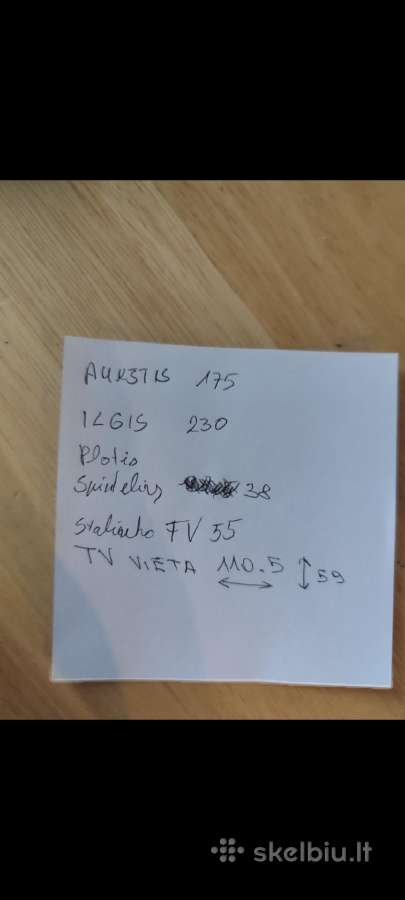 AUKŠTIS 175
ILGIS 230
Plotis
Spintelių 38
Staliuko TV 55
TV VIETA 110.5 59
skelbiu.lt